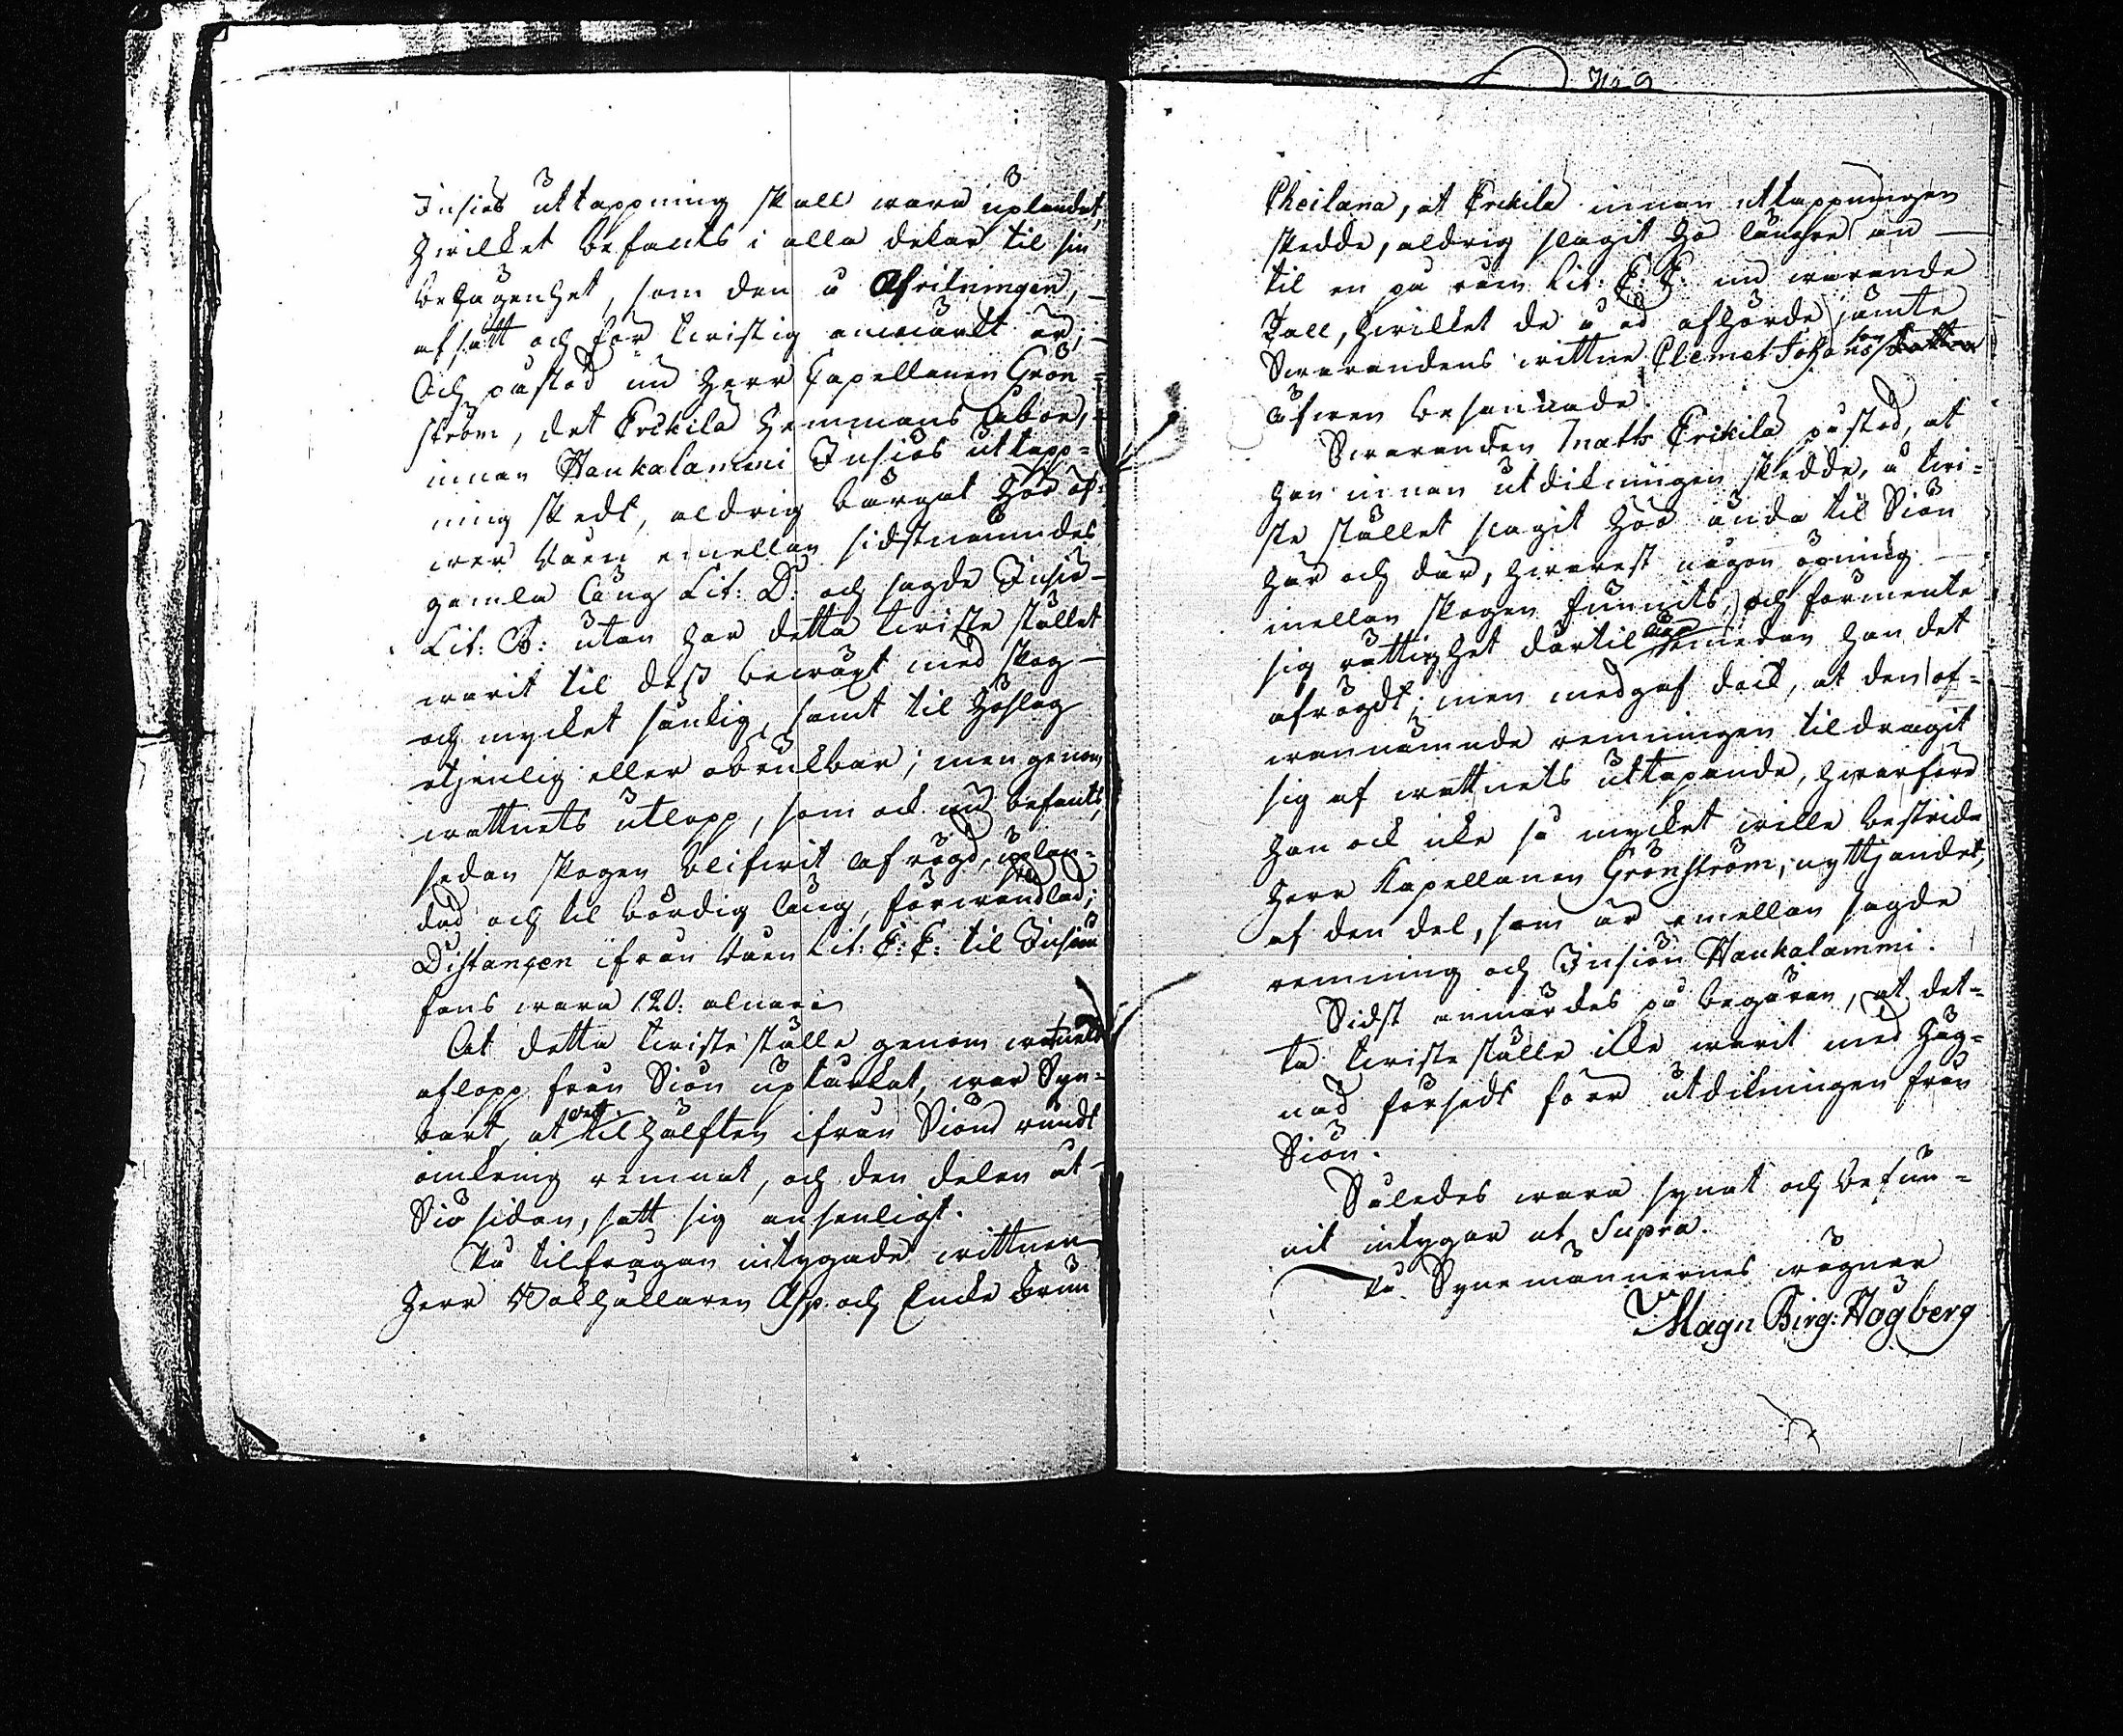 Insiös uttappning skall wara uplandat,
hwilket befants i alla delar til sin
belägenhet, som den å Afritningen,
afsatt och för twistig anmärkt är;
Och påstod nu Herr Capellanen Grön
ström, det Erckila Hemmans Åboer,
innan Haukalammi Insiös uttapp=
ning skedt, aldrig bärgat Höö öf=
wer Råen emellan sidstnämndes
gamla äng Lit: D. och sagde Insiö
Lit: B: utan har detta twiste stället
warit til dess bewäxt med skog
och mycket sankig, samt til Höslag
otjenlig eller obrukbar; men genom
wattnets utlopp, som ock nu befants,
sedan skogen blifwit afrögd, uplan=
dad och til bördig äng, förwandlad;
Distançen ifrån Råen Lit: E: F: til Insiön
fans wara 120. alnar.
At detta twiste ställe genom watnets
aflopp från Siön uptorkat, war Syn=
bart, at det til hälften ifrån Siön rundt
omkring remnat, och den delen åt
Siö sidan, satt sig ansenligt.
På tilfrågan intygade wittnen
Herr Bokhållaren Asp. och Encke Brun
729
Pheilana, at Erckila innan uttappningen
skedde, aldrig slagit Hö längre än
til en på råen Lit: E: F: nu warande
Tall, hwilket de å ed afhörde jämte
Swarandens wittne Clemet Johansson
äfwen besannade.
Swaranden Matts Erikila påstod, at
han innan utdikningen skedde, å twi=
ste stället slagit Höö ända til Siön
här och där, hwarest någon öpning
mellan skogen funnits, och förmente
sig rättighet därtil äga emedan han det
afrögdt; men medgaf dock, at den of=
wannämnde remningen tildragit
sig af wattnets uttapande, hwarföre
han ock icke så mycket wille bestrida
Herr Kapellanen Grönström, nyttjandet,
af den del, som är emellan sagde
remning och Insiön Haukalammi.
Sidst anmärckes på begäran, at det=
ta twiste ställe icke warit med Häg=
nad försedt förr utdikningen från
Siön.
Således wara synat och befun=
nit intygar ut Supra.
På Synemännernes wägnar
Magn Birg: Högberg